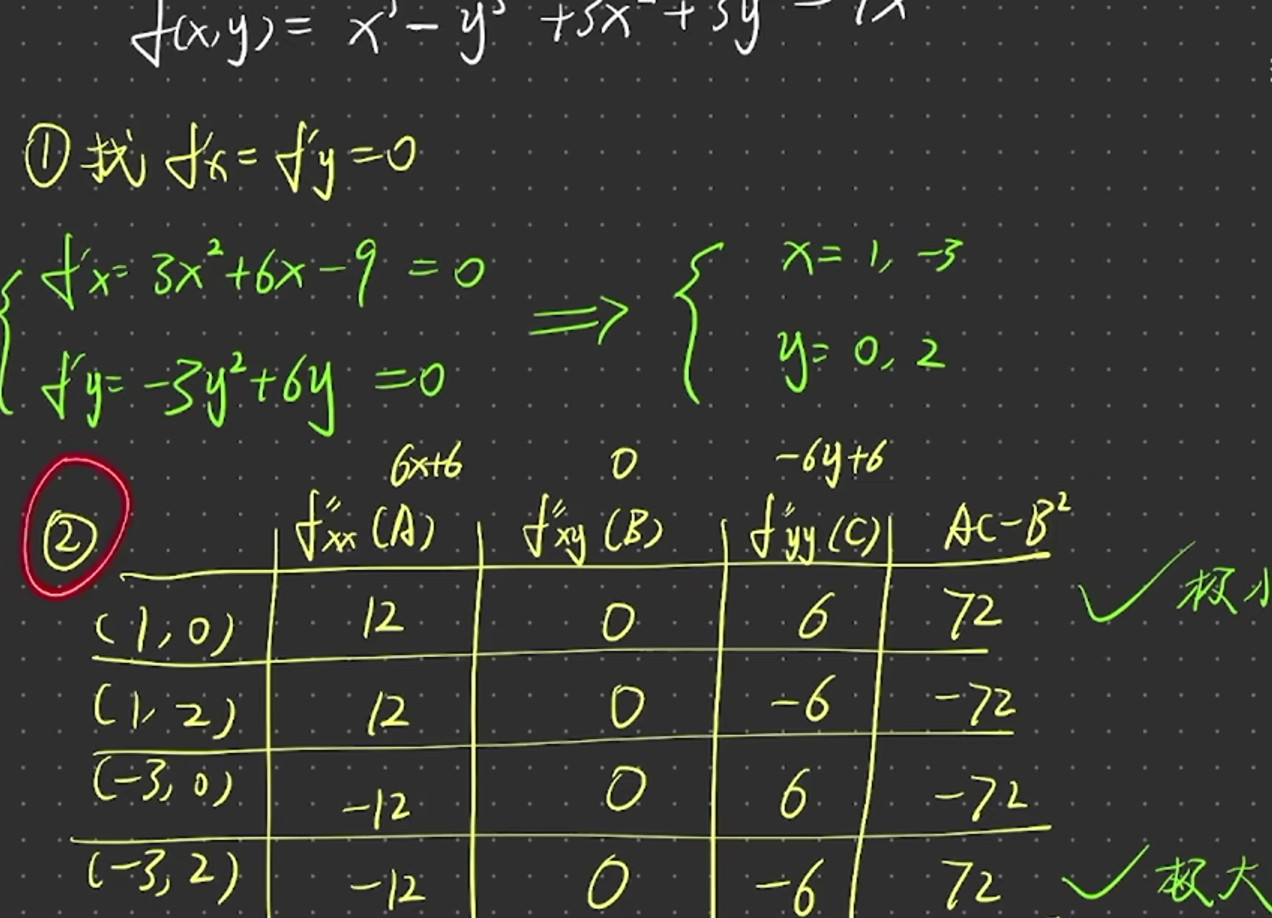 f(x,y) = x³ - y³ + 3x² + 3y² - 9x
① 找 f'x = f'y = 0
f'x = 3x² + 6x - 9 = 0 ⟹ { x = 1, -3
f'y = -3y² + 6y = 0 y = 0, 2
6x+6 0 -6y+6
② f''xx (A) f''xy (B) f''yy (C) AC-B²
(1, 0) 12 0 6 72 ✓ 极小
(1, 2) 12 0 -6 -72
(-3, 0) -12 0 6 -72
(-3, 2) -12 0 -6 72 ✓ 极大